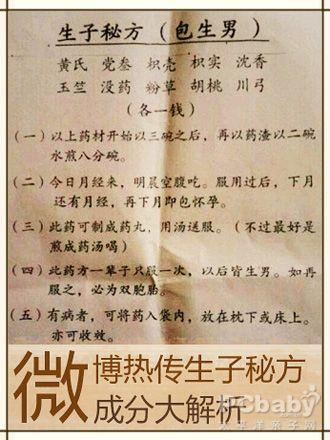 生子秘方（包生男）
黄氏 党叁 枳壳 枳实 沈香
玉竺 没药 粉草 胡桃 川弓
（各一钱）
（一）以上药材开始以三碗之后，再以药渣以二碗
水煎八分碗。
（二）今日月经来，明晨空腹吃。服用过后，下月
还有月经，再下月即包怀孕。
（三）此药可制成药丸，用汤送服。（不过最好是
煎成药汤喝）
（四）此药方一辈子只服一次，以后皆生男。如再
服之，必为双胞胎。
（五）有病者，可将药入袋内，放在枕下或床上。
亦可收效。
微
博热传生子秘方
成分大解析
PCbaby
太平洋亲子网